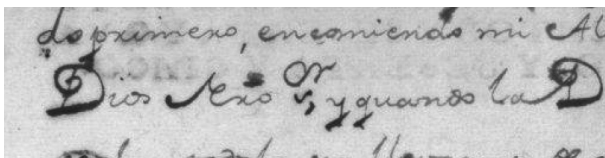 do primero, encomiendo mi Al
Dios Nro Sr, y quando la D